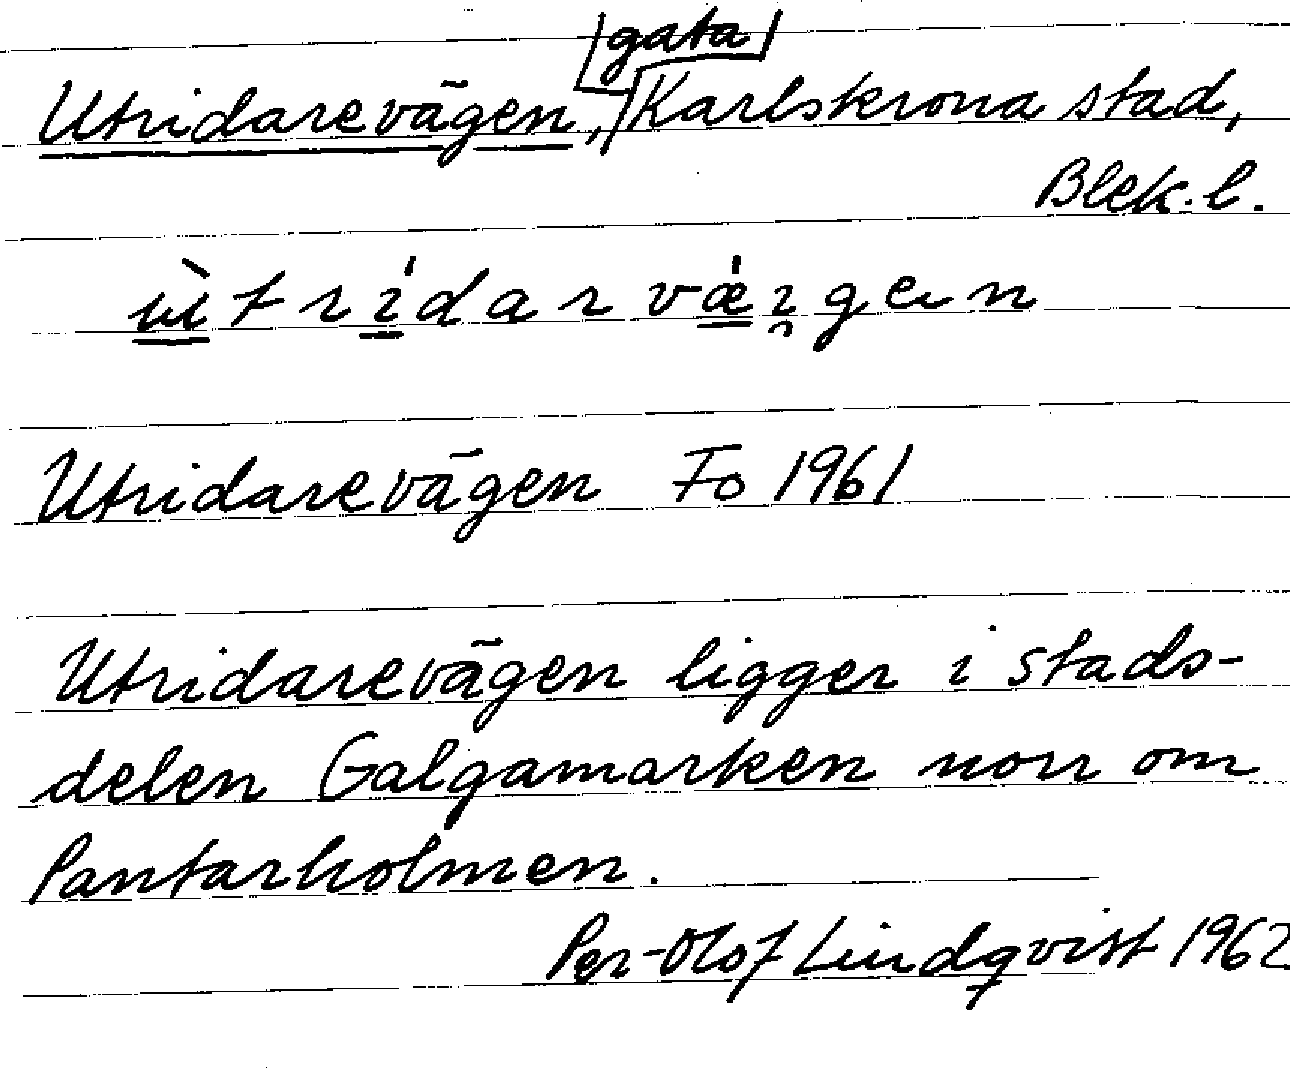 gata
Utridarevägen, Karlskrona stad,
Blek. l.
Utridarevägen Fo 1961
Utridarevägen ligger i stads-
delen Galgamarken norr om
Pantarholmen.
Per-Olof Lindqvist 1962